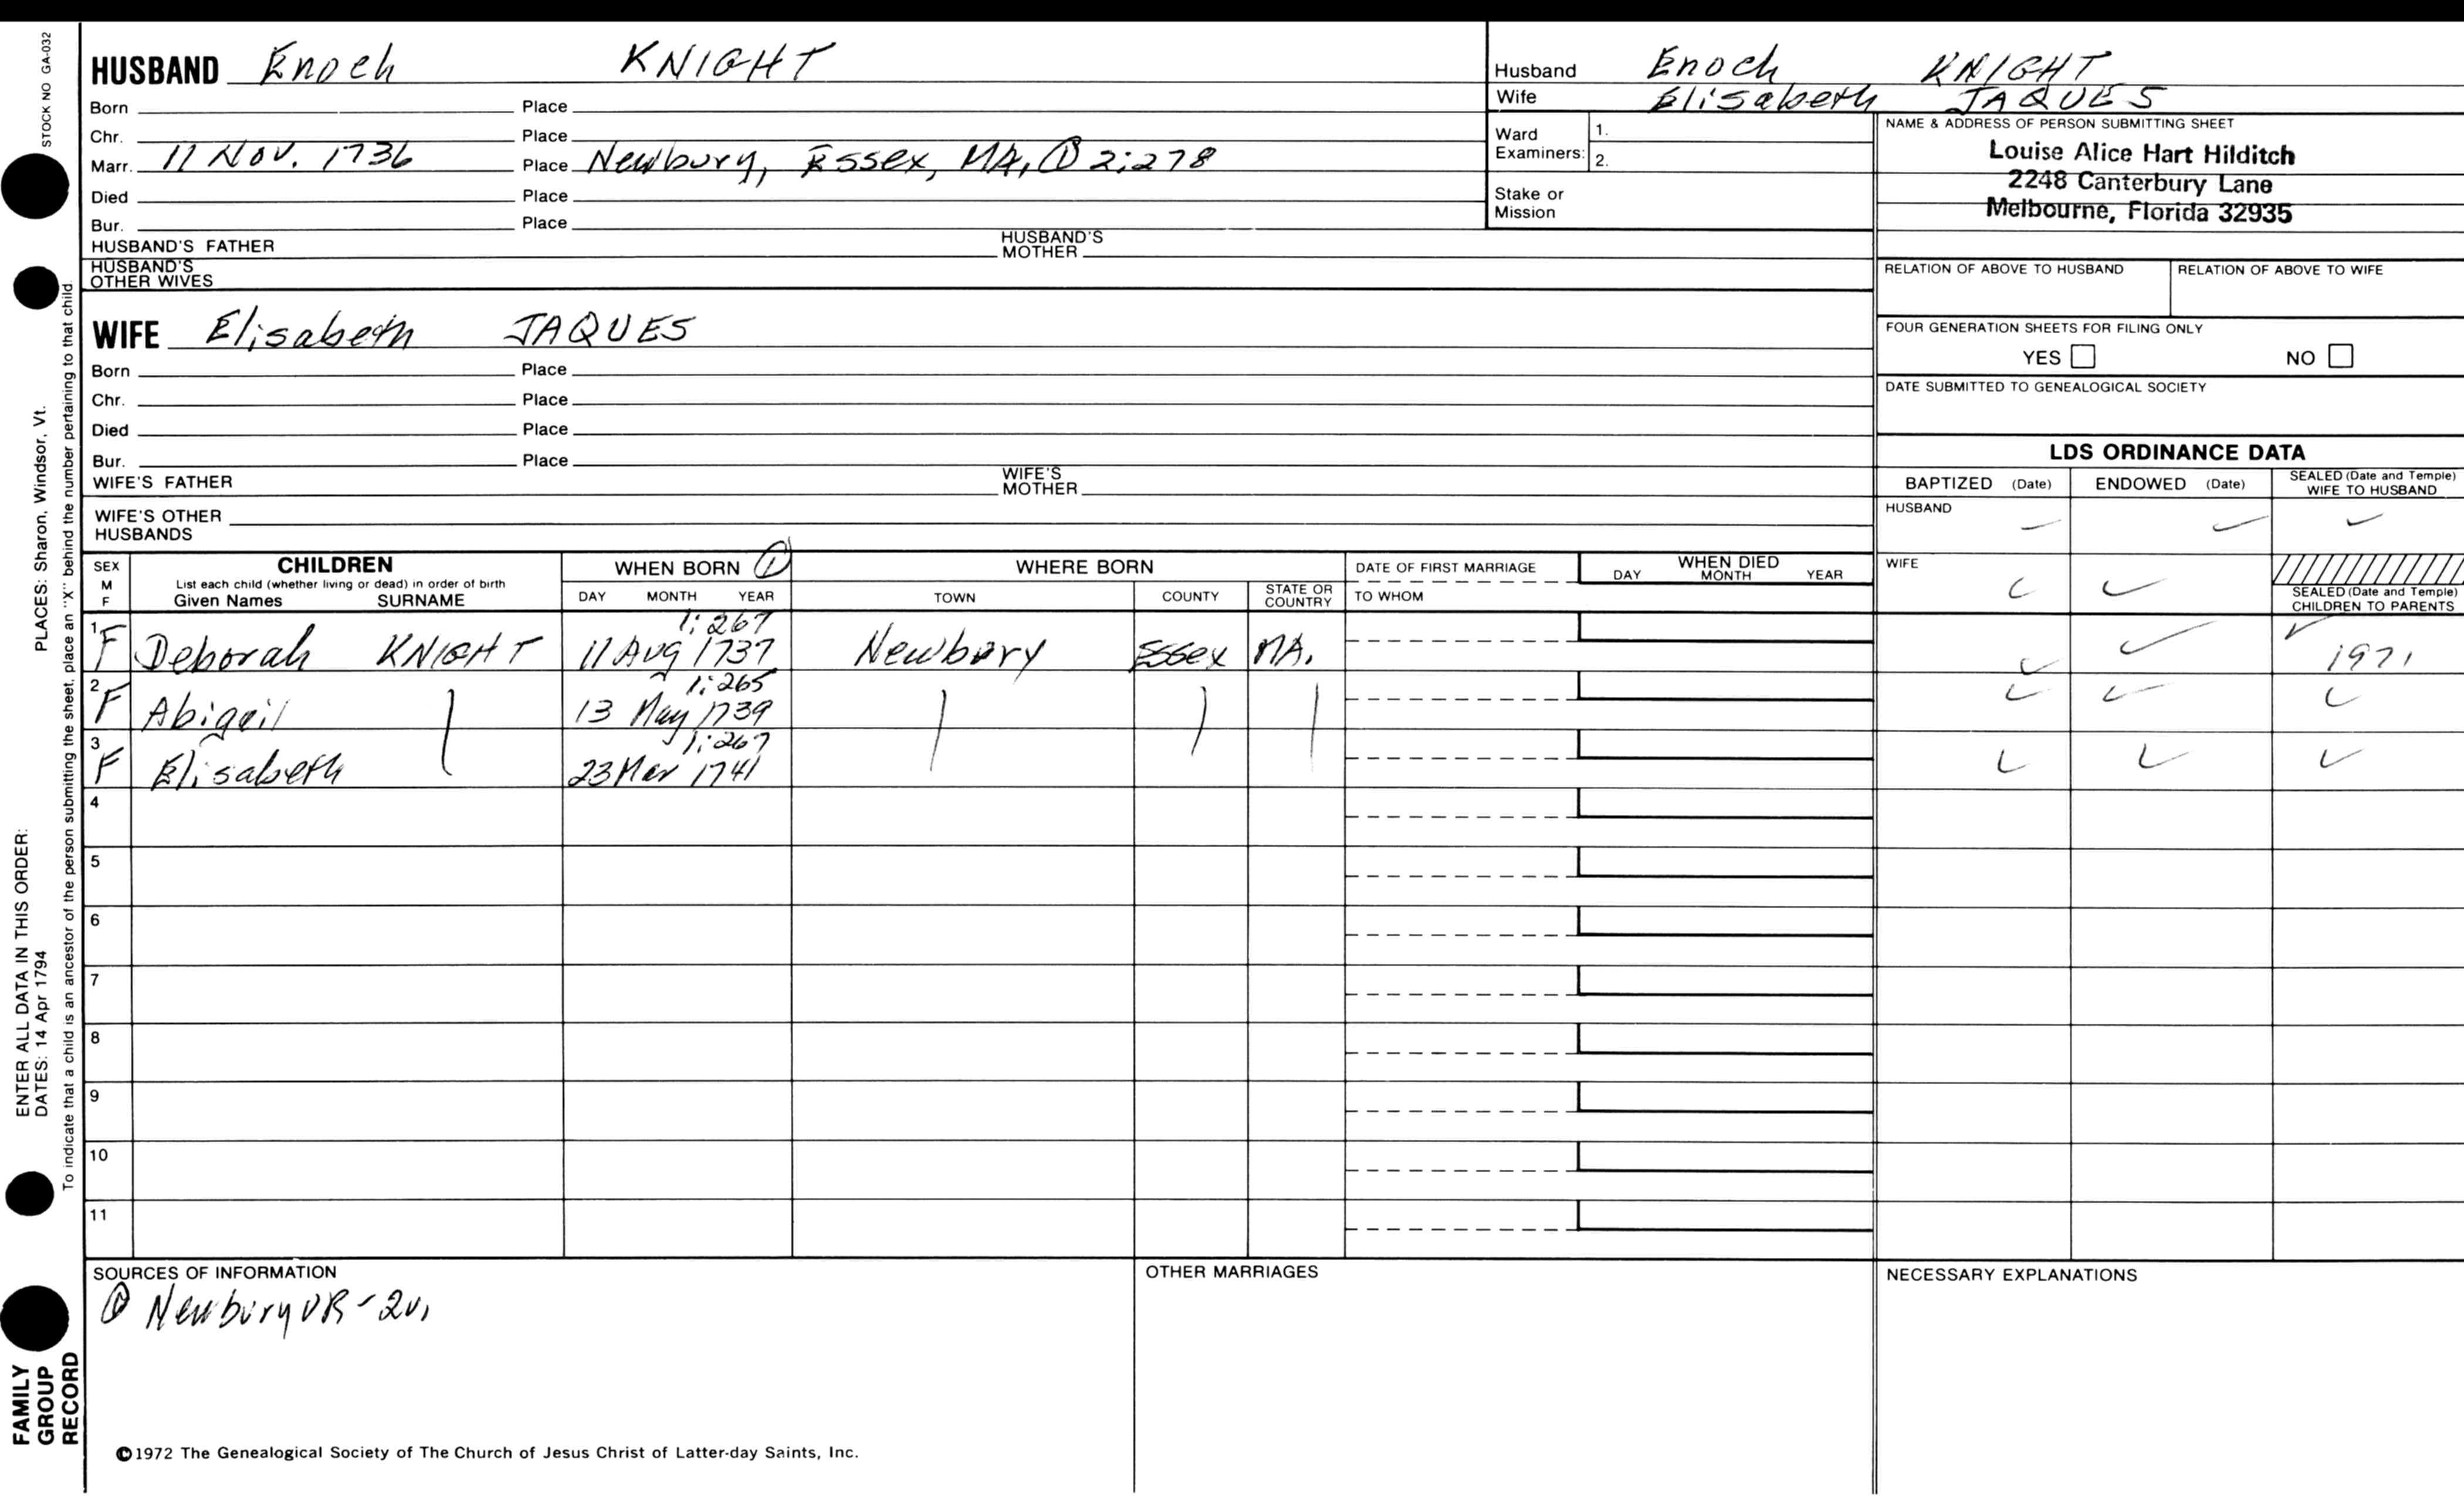 STOCK NO GA-032
HUSBAND Enoch KNIGHT
Born Place
Chr. Place
Marr. 11 Nov. 1736 Place Newbury, Essex, MA, ① 2:278
Died Place
Bur. Place
HUSBAND'S FATHER HUSBAND'S MOTHER
HUSBAND'S OTHER WIVES
WIFE Elisabeth JAQUES
Born Place
Chr. Place
Died Place
Bur. Place
WIFE'S FATHER WIFE'S MOTHER
WIFE'S OTHER HUSBANDS
Husband Enoch KNIGHT
Wife Elisabeth JAQUES
Ward Examiners: 1.
2.
Stake or Mission
NAME & ADDRESS OF PERSON SUBMITTING SHEET
Louise Alice Hart Hilditch
2248 Canterbury Lane
Melbourne, Florida 32935
RELATION OF ABOVE TO HUSBAND RELATION OF ABOVE TO WIFE
FOUR GENERATION SHEETS FOR FILING ONLY
YES NO
DATE SUBMITTED TO GENEALOGICAL SOCIETY
LDS ORDINANCE DATA
BAPTIZED (Date) ENDOWED (Date) SEALED (Date and Temple) WIFE TO HUSBAND
HUSBAND ✓ ✓ ✓
WIFE ✓ ✓
SEALED (Date and Temple) CHILDREN TO PARENTS
SEX M F CHILDREN WHEN BORN ① WHERE BORN DATE OF FIRST MARRIAGE WHEN DIED
List each child (whether living or dead) in order of birth
Given Names SURNAME DAY MONTH YEAR TOWN COUNTY STATE OR COUNTRY TO WHOM DAY MONTH YEAR
1:267
1 F Deborah KNIGHT 11 Aug 1737 Newbury Essex MA. ✓ ✓ ✓ 1971
1:265
2 F Abigail 13 May 1739 ✓ ✓ ✓
1:267
3 F Elisabeth 23 Mar 1741 ✓ ✓ ✓
4
5
6
7
8
9
10
11
SOURCES OF INFORMATION
① Newbury VR - 2v,
OTHER MARRIAGES
NECESSARY EXPLANATIONS
©1972 The Genealogical Society of The Church of Jesus Christ of Latter-day Saints, Inc.
ENTER ALL DATA IN THIS ORDER:
DATES: 14 Apr 1794 PLACES: Sharon, Windsor, Vt.
To indicate that a child is an ancestor of the person submitting the sheet, place an "X" behind the number pertaining to that child.
FAMILY
GROUP
RECORD